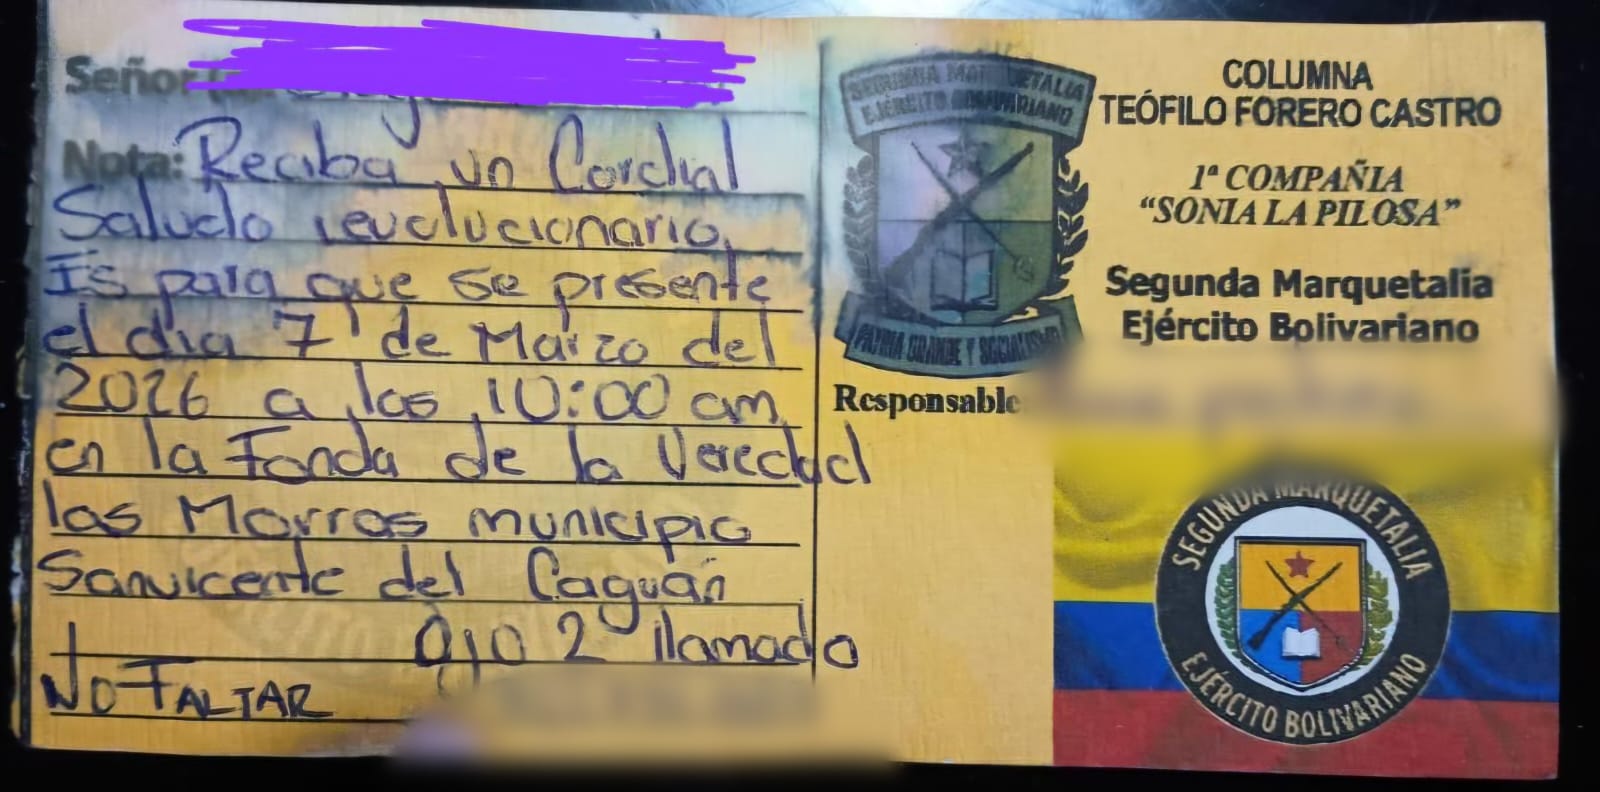 Señor
Nota: Reciba un Cordial
Saludo revolucionario,
Es para que se presente
el dia 7 de Marzo del
2026 a las 10:00 am
en la Fonda de la Veredad
las Morras municipio
Sanvicente del Caguán
Ojo 2 llamado
NO FALTAR
SEGUNDA MARQUETALIA
EJÉRCITO BOLIVARIANO
PATRIA GRANDE Y SOCIALISMO
Responsable
COLUMNA
TEÓFILO FORERO CASTRO
1ª COMPAÑIA
“SONIA LA PILOSA”
Segunda Marquetalia
Ejército Bolivariano
SEGUNDA MARQUETALIA
EJÉRCITO BOLIVARIANO